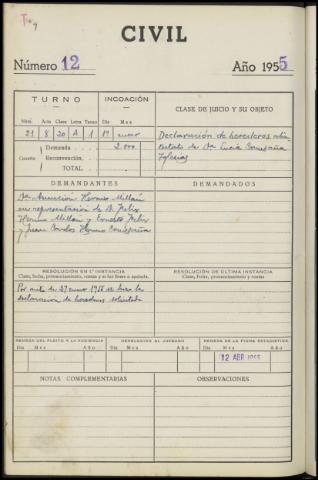 CIVIL
Número 12 Año 1955
TURNO INCOACIÓN CLASE DE JUICIO Y SU OBJETO
Núm. Clase Letra Turno Día Mes
21 8 20 A 1 19 enero
Declaración de herederos
Cuantía Demanda 2.000
Reconvención
TOTAL
de Dª Lucía
Iglesias
DEMANDANTES DEMANDADOS
Dª Asunción Herrero Millán
en representación de D. Felix
Herrero Millán y Ernesto Felix
y Juan Carlos Herrero
RESOLUCIÓN EN 1.ª INSTANCIA RESOLUCIÓN DE ÚLTIMA INSTANCIA
Clase, fecha, pronunciamiento, costas y si fue firme o apelada. Clase, fecha, pronunciamiento y costas
Por auto de 27 enero 1955 se hizo la
declaración de herederos solicitada
REMESA DEL PLEITO A LA AUDIENCIA DEVOLUCIÓN AL JUZGADO REMESA DE LA FICHA ESTADÍSTICA
Día Mes Año Día Mes Año Día Mes Año
12 ABR 1955
NOTAS COMPLEMENTARIAS OBSERVACIONES